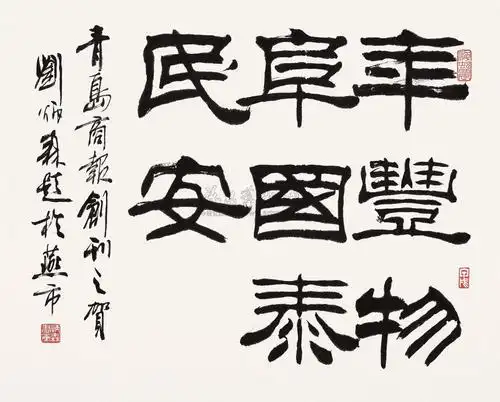 年豐物
阜國泰
民安
青島商報創刊之賀
劉炳森題於燕市